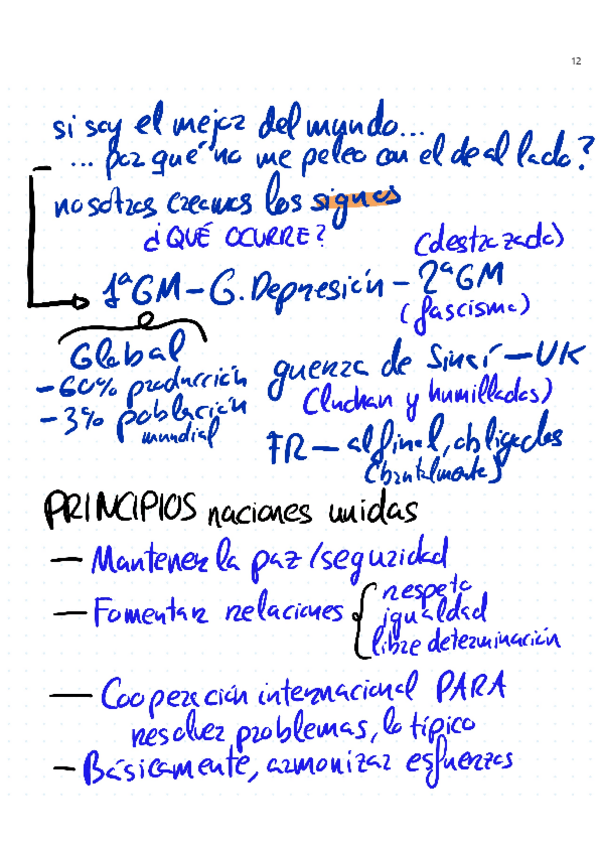 12
si soy el mejor del mundo...
... por qué no me peleo con el de al lado?
nosotros creamos los signos
¿QUÉ OCURRE?
(destrozado)
1ªGM – G. Depresión – 2ªGM
(fascismo)
Global
– 60% producción
– 3% población
mundial
guerra de Sinaí – UK
(luchan y humillados)
FR – al final, obligados
(brutalmente)
PRINCIPIOS naciones unidas
– Mantener la paz/seguridad
– Fomentar relaciones
respeto
igualdad
libre determinación
– Cooperación internacional PARA
resolver problemas, lo típico
– Básicamente, armonizar esfuerzos